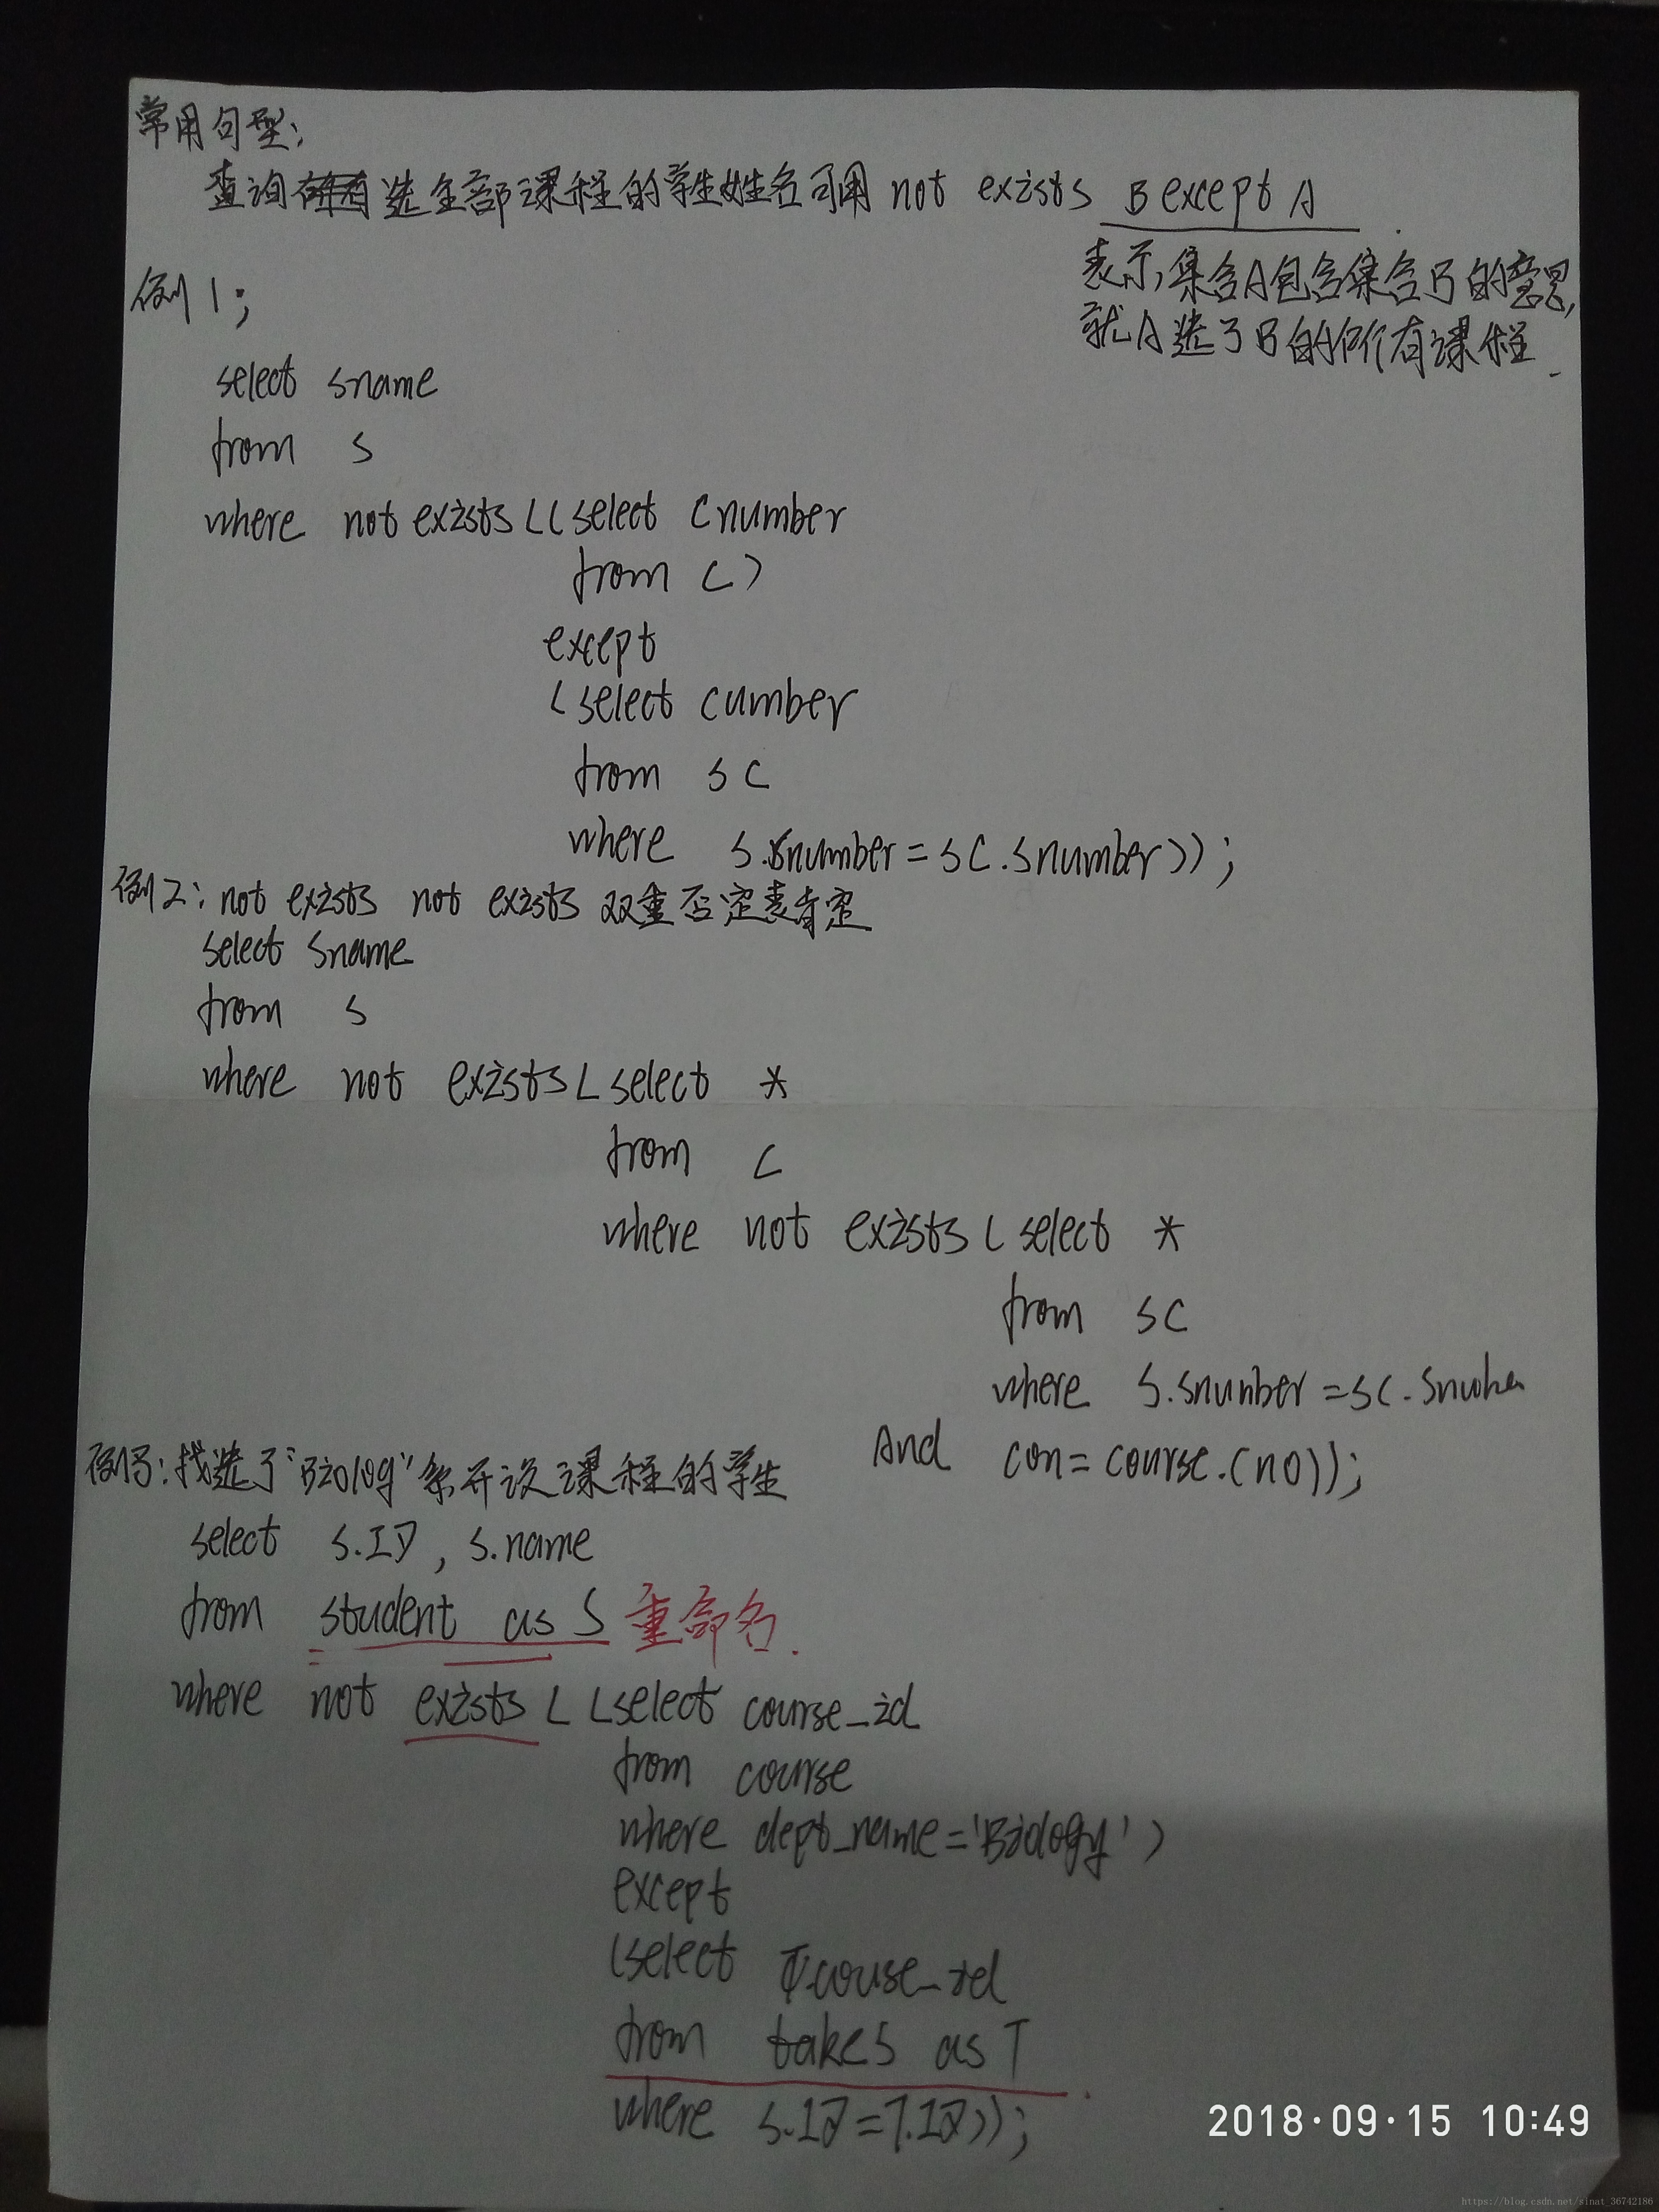 常用句型:
查询选全部课程的学生姓名可用 not exists B except A.
表示,集合A包含集合B的意思,
就A选了B的所有课程.
例1;
select sname
from S
where not exists ((select Cnumber
from C)
except
(select cumber
from SC
where S.snumber=SC.snumber));
例2: not exists not exists 双重否定表肯定
select sname
from S
where not exists (select *
from C
where not exists (select *
from SC
where S.snumber=SC.
And con=course.(no));
例3:找选了"Biolog"系开设课程的学生
select S.ID, S.name
from student as S 重命名.
where not exists ( (select course_id
from course
where dept_name='Biology')
except
(select T.couse_id
from takes as T.
where S.ID=T.ID));
2018·09·15 10:49
https://blog.csdn.net/sinat_36742186